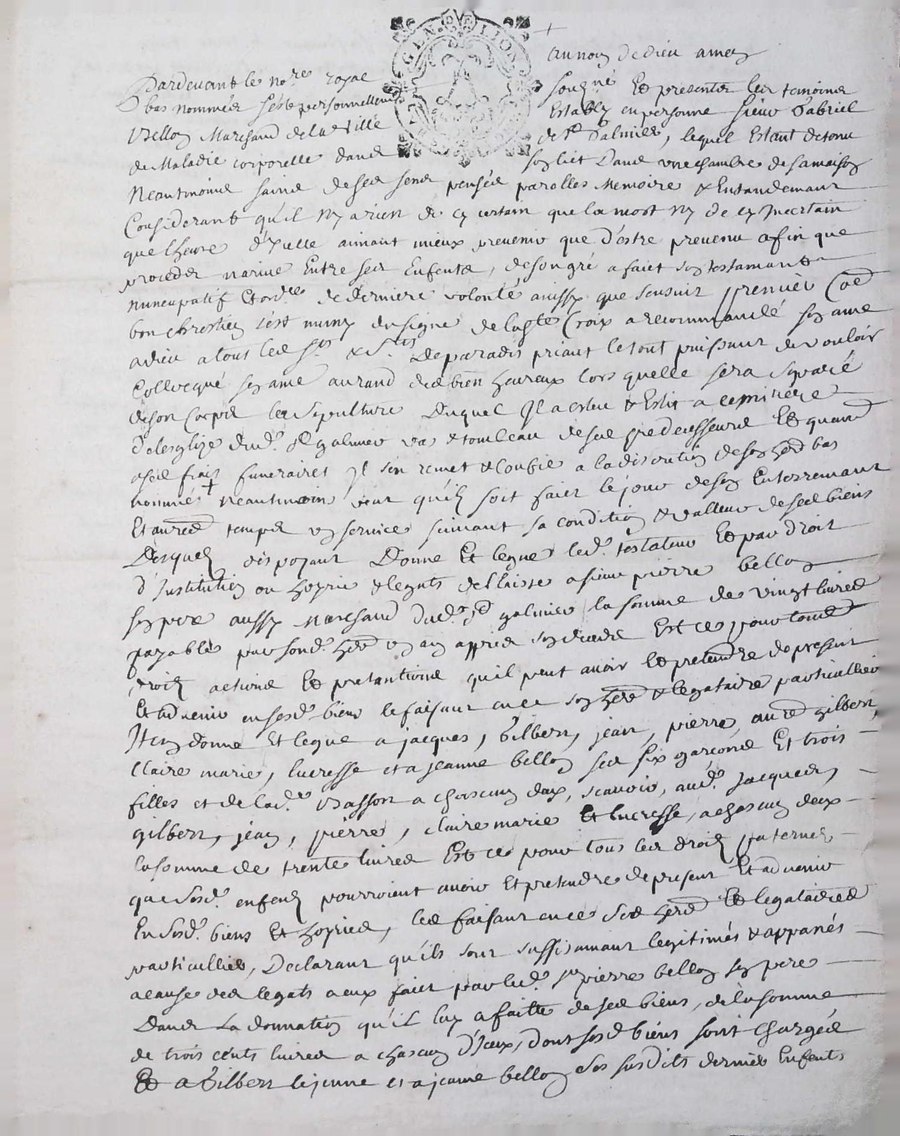 GEN LION
au nom de dieu amen
Pardevant le no.re royal sousigné Et presents les temoins
bas nommés s'est personnellem Estably en personne sieur Gabriel
Bellon Marchand de la Ville de St Galmier, lequel Estant detenu
de Maladie corporelle dans son lict Dans une chambre de sa maison
Neantmoins sain de ses sens pensée parolles Memoire & Entandement
Considerant qu'il ny a rien de cy certain que la mort ny de cy Incertain
que l'heure d'Icelle aimant mieux prevenir que d'estre prevenu afin que
proceder narive Entre ses Enfents, de son gré a faict son testament
nuncupatif Et ord.ce de derniere volonté ainsy que sensuit premier Co.e
bon chrestien s'est muny du signe de la ste Croix a recommandé son ame
a dieu a tous les Sts & Stes de paradis priant le tout puissant de vouloir
Collocqué son ame au rand des bien heureux lors quelle sera separée
de son Corps la sepulture duquel Il a esleu & Eslit a cemitiere
de lesglize dud. St galmier & tombeau de ses predecesseurs Et quand
a ses frais funeraires Il s'en remet & confie a la discretion de son herd bas
nommé Neantmoins veut qu'il soit faict le jour de son Enterremant
Et au temps un service suivant sa condition & valleur de ses biens
Desquels disposant Donne Et legue led. testateur Et par droit
d'Institution hoyrie & legats delaisse a sieur pierre bellon
son pere aussy marchand dud. St galmier la somme de vingt livres
payable par sond. herd un an apprés son deceds Est ce pour tous
droits actions Et pretantions qu'il peut avoir Et pretendre de present
Et advenir en sesd. biens le faisant en ce son herd & legataire particullier
Item donne Et legue a jacques, Gilbert, jean, pierre autre gilbert,
Claire marie, lucresse et a jeanne bellon ses six garçons Et trois
filles et de lad. Basson a chascun deux, scavoir, aud. Jacques,
gilbert, jean, pierre, claire marie Et lucresse, a chascun deux
la somme de trente livres Est ce pour tous les droits paternels
que sesd. enfents pourroient avoir Et pretendre de present Et advenir
En sesd. biens Et hoyries, les faisant en ce ses herds Et legataires
particulliers, Declarant qu'ils sont suffisamant legitimés & appanés
a cause des legats a eux faict par led. sr pierre bellon son pere
Dans La donnation qu'il luy a faitte de ses biens, de la somme
de trois cents livres a chascun d'Iceux, dont sesd. biens sont chargés
Et a Gilbert le jeune et a jeanne bellon ses susdits derniers Enfents